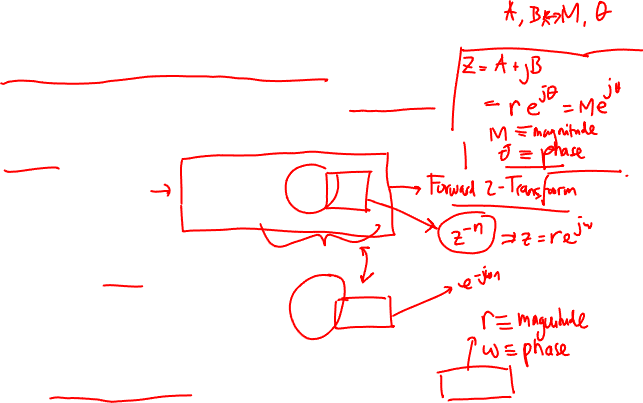 A, B ↔ M, θ
Z = A + jB
= r e^{jθ} = M e^{jθ}
M ≡ magnitude
θ ≡ phase
Forward Z-Transform
z^{-n} ⇒ z = r e^{jω}
e^{-jωn}
r ≡ magnitude
ω ≡ phase